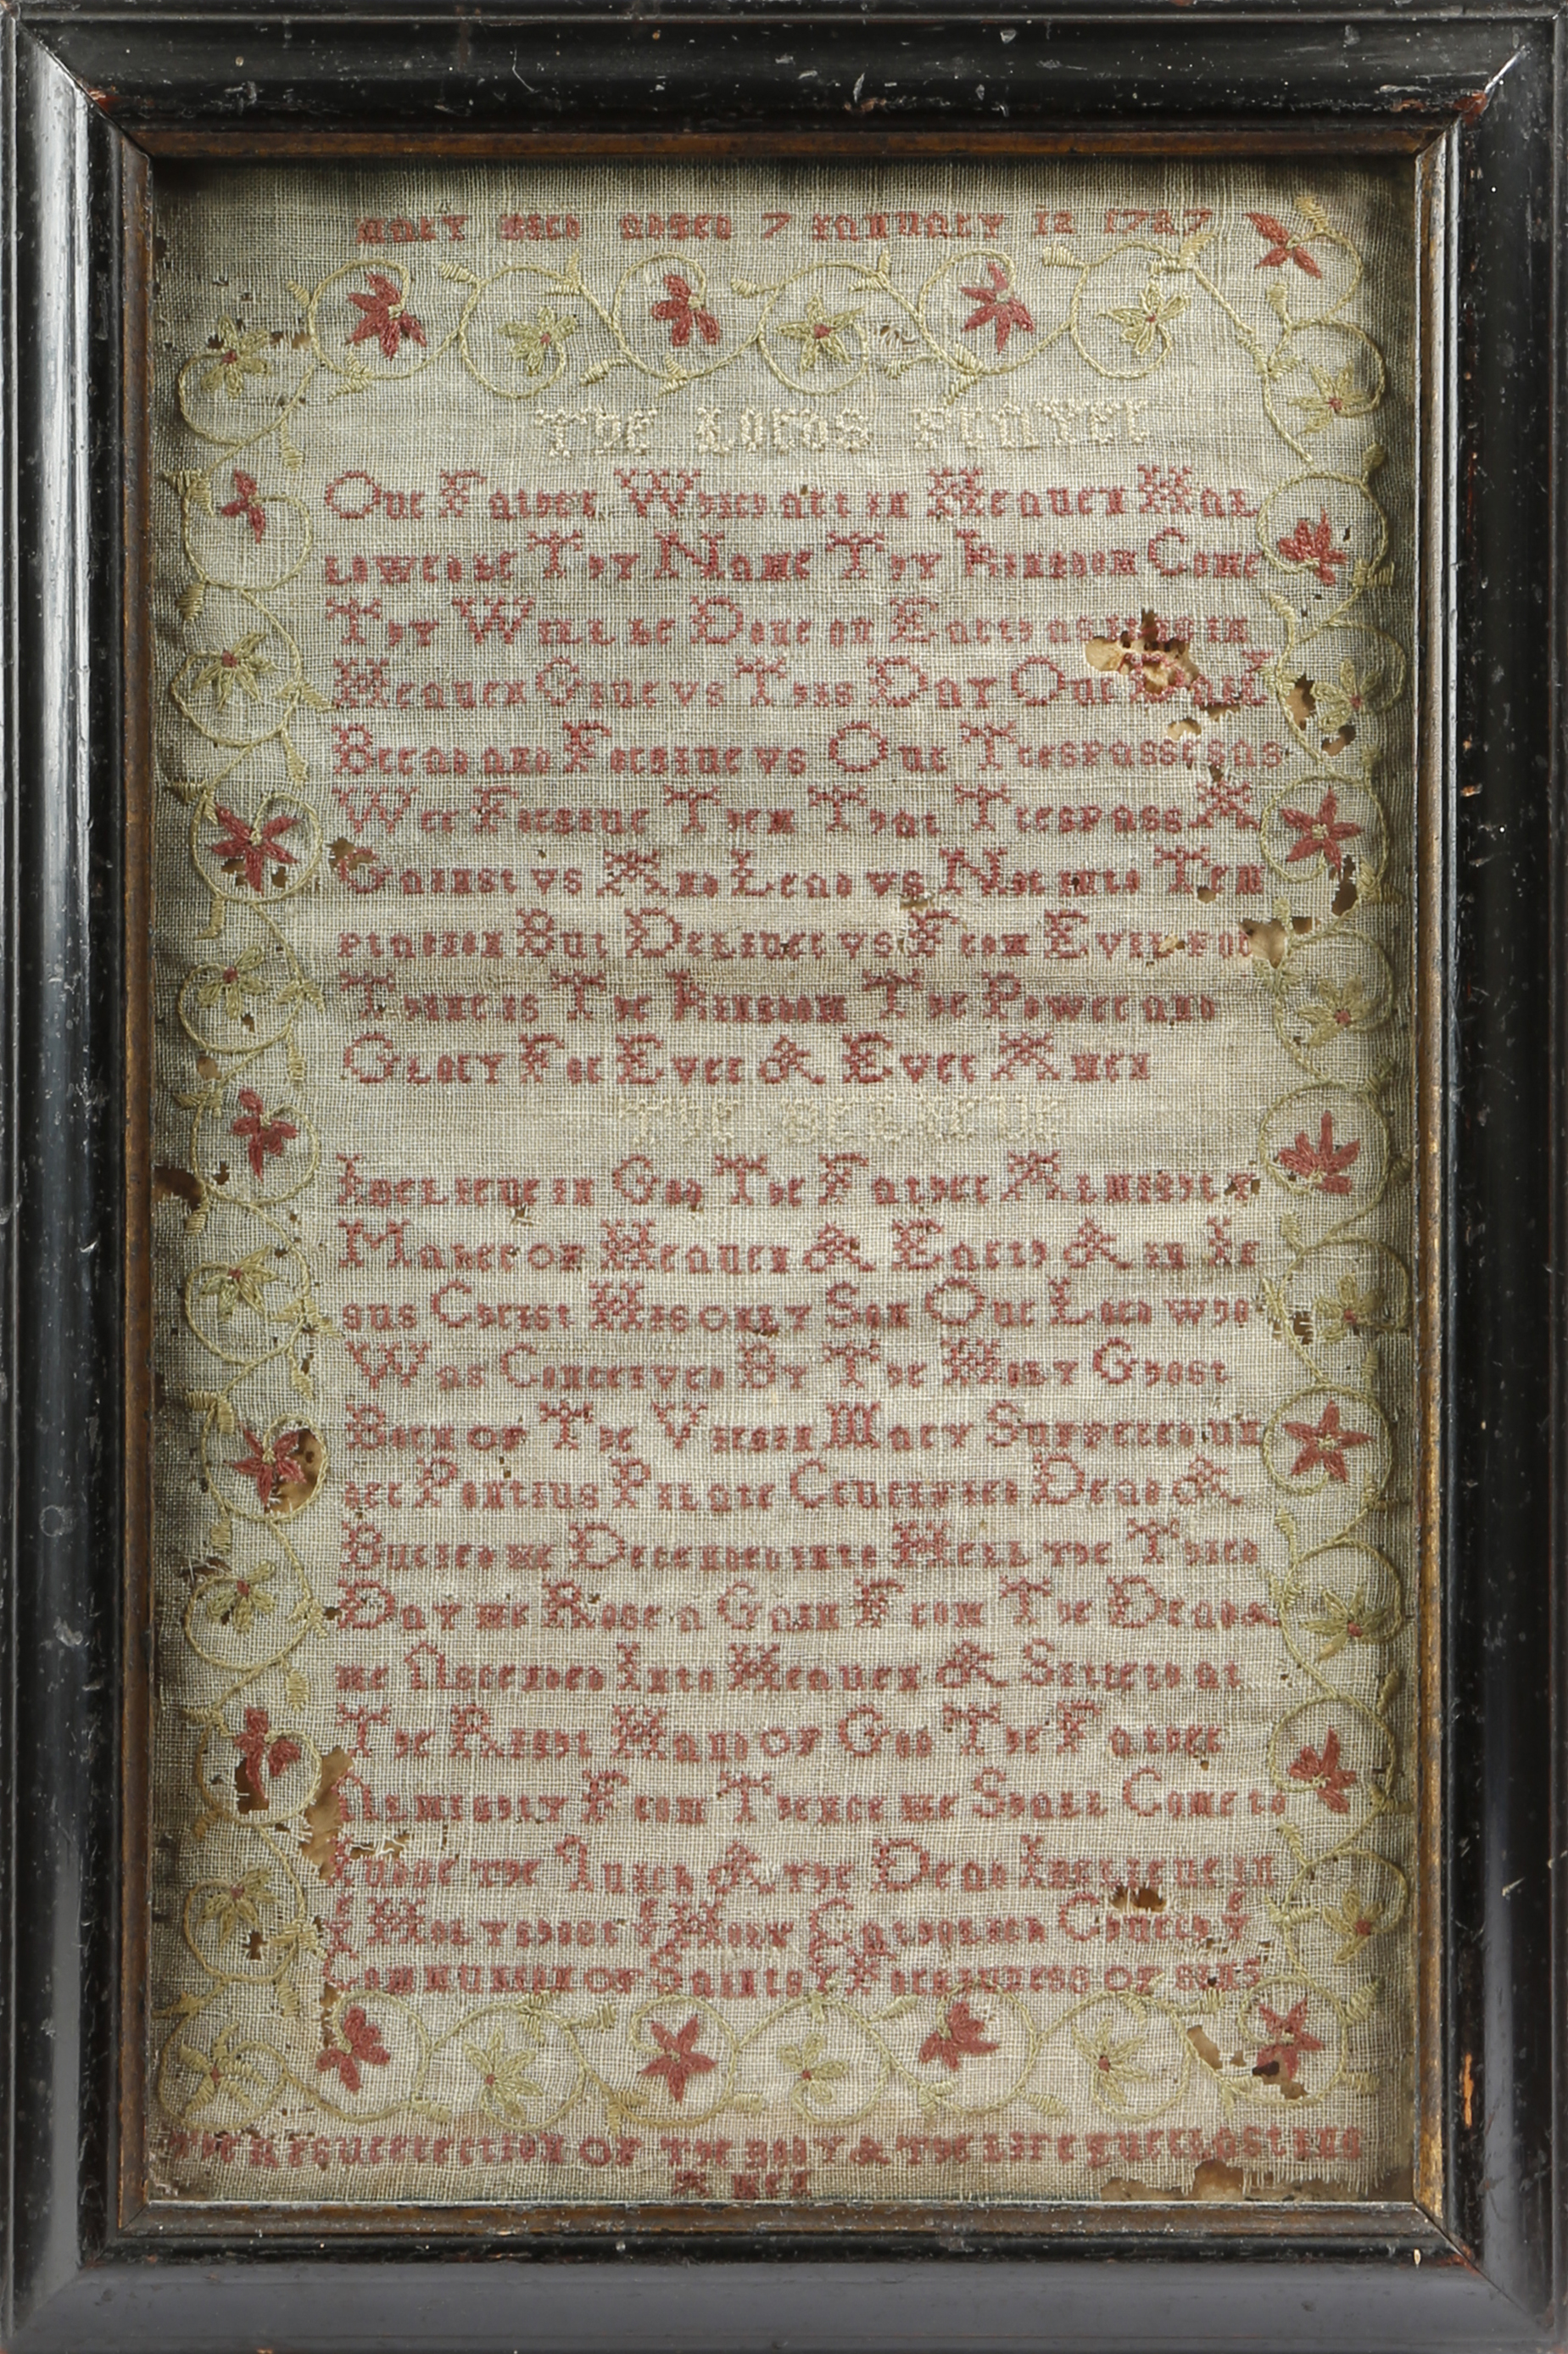 mary aged 7 January 12 1727
The Lords Prayer
Our Father Which art in Heauen Hal
lowed be Thy Name Thy Kingdom Come
Thy Will be Done on Earth as it is in
Heauen Giue vs This Day Our Dail
Bread and Forgiue vs Our Trespasses as
Wee Forgiue Them That Trespass A
Gainst vs And Lead vs Not into Tem
ptation But Deliuer vs From Evil for
Thine is The Kingdom The Power and
Glory For Ever & Ever Amen
The Beleieue
I belieue in God The Father Almighty
Maker of Heauen & Earth & in Je
sus Christ His only Son Our Lord who
Was Conceived By The Holy Ghost
Born of The Virgin Mary Suffered un
der Pontius Pilate Crucified Dead &
Buried he Decended into Hell the Third
Day he Rose a Gain From The Dead
he Ascended Into Heauen & Sitteth at
The Right Hand of God The Father
Almighty From Thence he Shall Come to
Judge the Quick & the Dead I belieue in
ye Holy Ghost ye Holy Catholick Church ye
Communion of Saints ye Forgivness of sins
the Resurrection of The Body & The Life Euerlasting
Amen